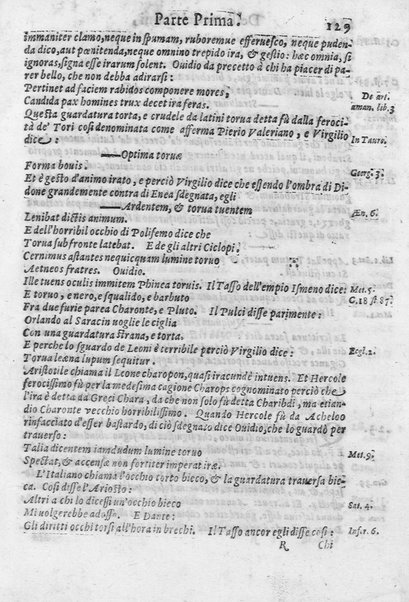 Parte Prima. 129
immaniter clamo, neque in spumam, ruboremue efferuesco, neque puden-
da dico, aut pœnitenda, neque omnino trepido ira, & gestio: hæc omnia, si
ignoras, signa esse irarum solent. Ouidio da precetto à chi ha piacer di pa-
rer bello, che non debba adirarsi:
Pertinet ad faciem rabidos componere mores, De art.
Candida pax homines trux decet ira feras. aman. lib. 3
Questa guardatura torta, e crudele da latini torua detta fù dalla feroci-
tà de' Tori così denominata come afferma Pierio Valeriano, e Virgilio In Tauro.
dice:
——Optima toruæ Georg. 3.
Forma bouis.
Et è gesto d'animo irato, e perciò Virgilio dice che essendo l'ombra di Di-
done grandemente contra di Enea sdegnata, egli
——Ardentem, & torua tuentem Æn. 6.
Lenibat dictis animum.
E dell'horribil occhio di Polifemo dice che
Torua sub fronte latebat. E de gli altri Ciclopi,
Cernimus astantes nequicquam lumine toruo
Aetneos fratres. Ouidio.
Ille tuens oculis immitem Phinea toruis. Il Tasso dell'empio Ismeno dice: Met. 5.
E toruo, e nero, e squalido, e barbuto C. 18 st 87.
Fra due furie parea Charonte, e Pluto. Il Pulci disse parimente:
Orlando al Saracin uoglie le ciglia
Con una guardatura strana, e torta.
E perche lo sguardo de Leoni è terribile perciò Virgilio dice: Egl. 2.
Torua leæna lupum sequitur.
Aristotile chiama il Leone charopon, quasi iracundè intuens. Et Hercole
ferocissimo fù per la medesima cagione Charops cognominato perciò che
l'ira è detta da Greci Chara, da che non solo fù detta Charibdi, ma etian-
dio Charonte vecchio horribilissimo. Quando Hercole fù da Acheloo
rinfacciato d'esser bastardo, di ciò sdegnato dice Ouidio, che lo guardò per
trauerso:
Talia dicentem iamdudum lumine toruo Met. 9.
Spectat, & accensæ non fortiter imperat iræ.
L'Italiano chiama l'occhio torto bieco, & la guardatura trauersa bie-
ca. Così disse l'Ariosto:
Altri a chi lo dicessi un'occhio bieco Sat. 4.
Mi uolgerebbe adosso. E Dante:
Gli diritti occhi torsi all'hora in brechi. Il Tasso ancor egli disse così: Inf. r. 6.
R Chi